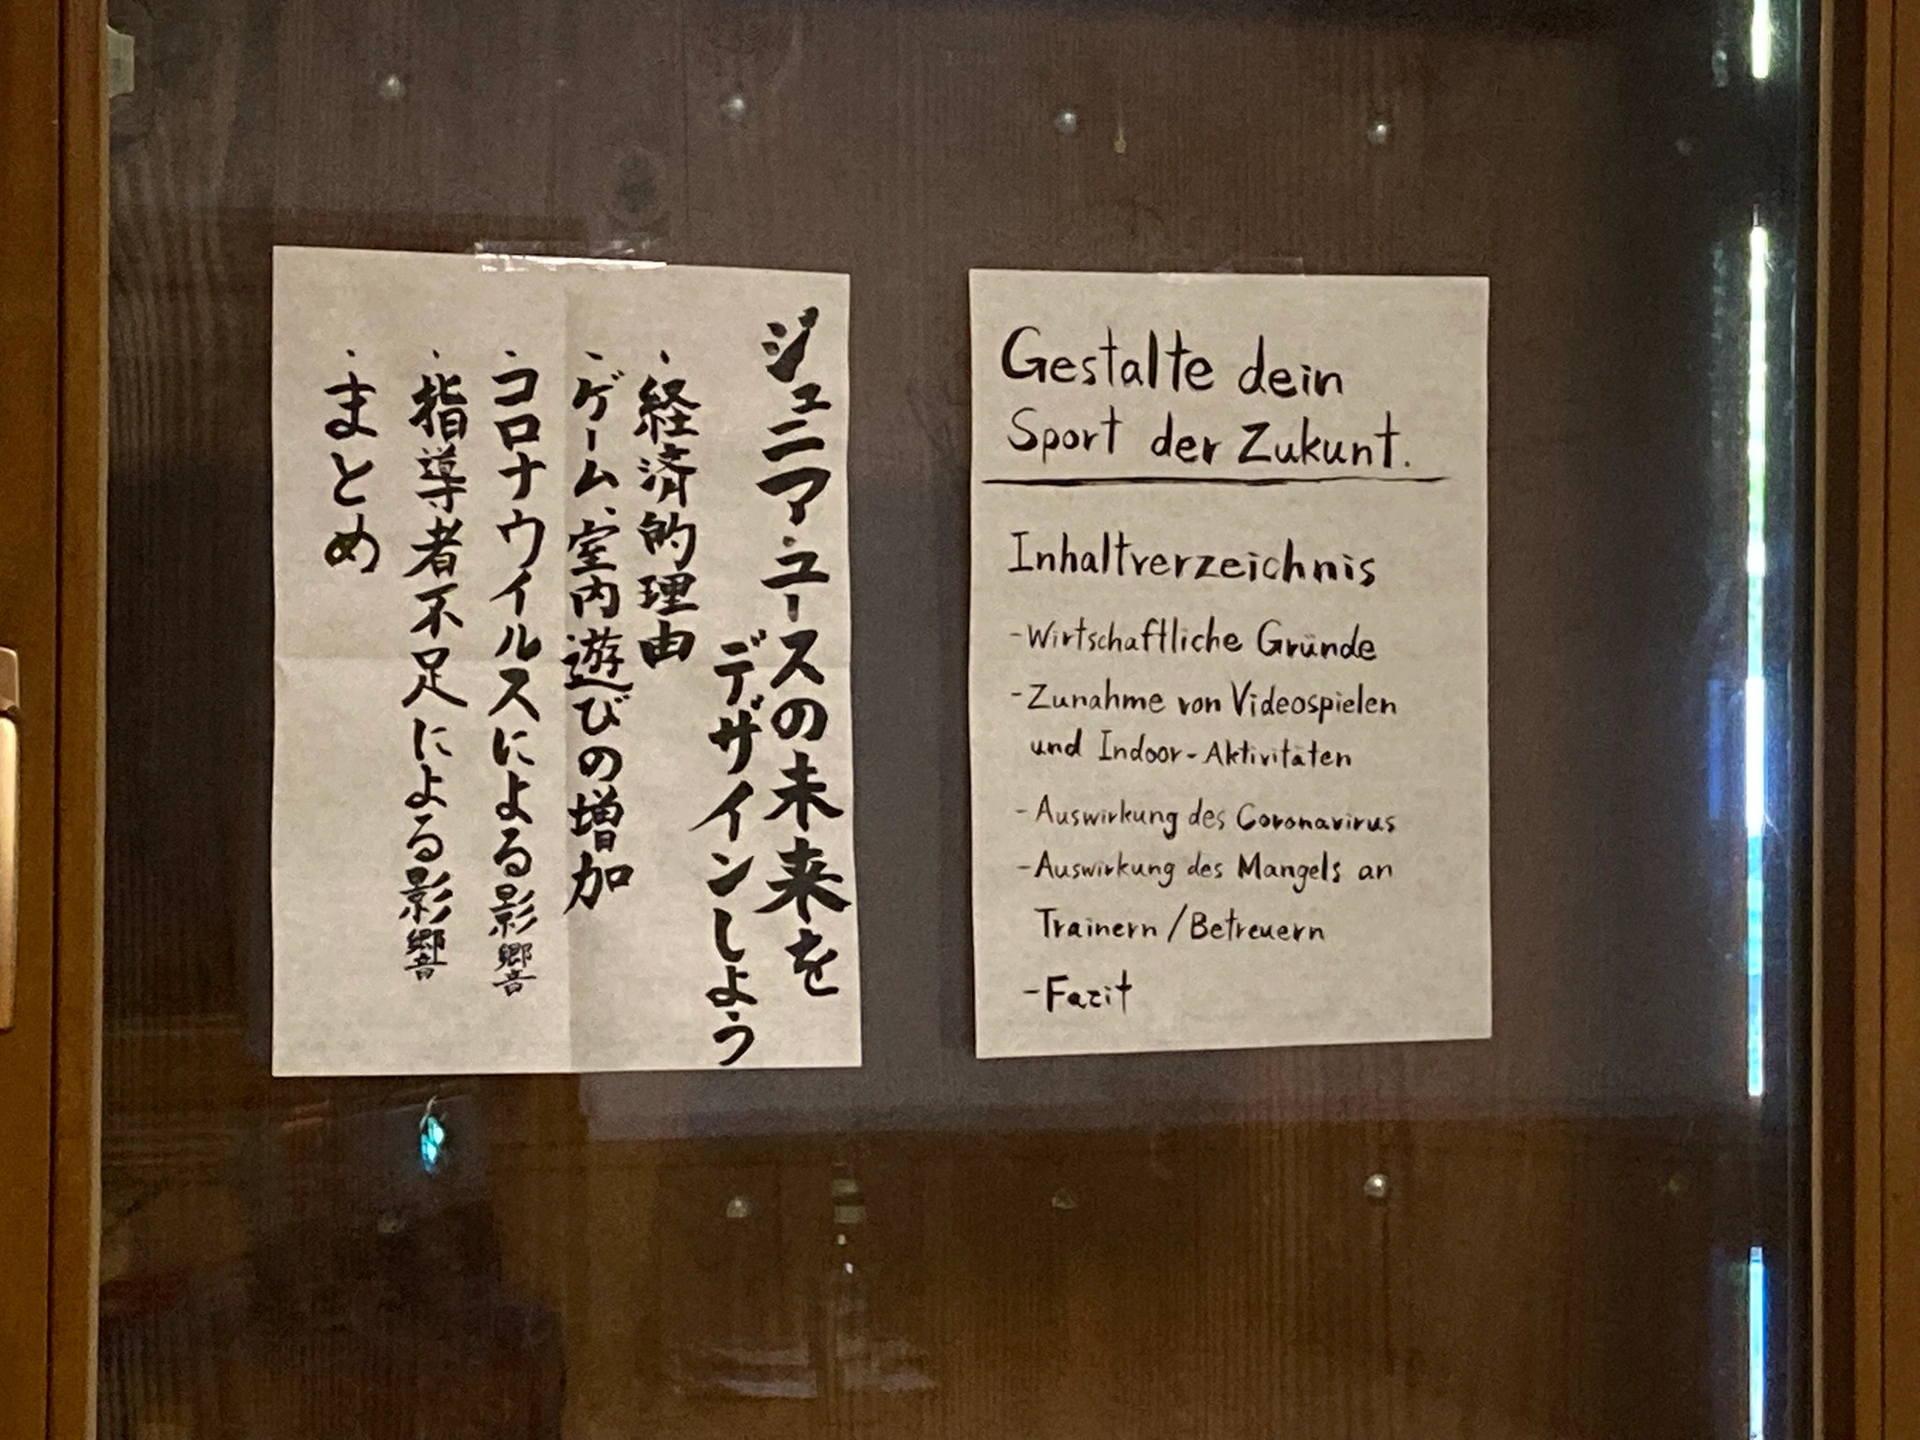 ジュニア・ユースの未来を
デザインしよう
・経済的理由
・ゲーム、室内遊びの増加
・コロナウイルスによる影響
・指導者不足による影響
・まとめ
Gestalte dein
Sport der Zukunt.
Inhaltverzeichnis
-Wirtschaftliche Gründe
-Zunahme von Videospielen
und Indoor-Aktivitäten
-Auswirkung des Coronavirus
-Auswirkung des Mangels an
Trainern/Betreuern
-Fazit